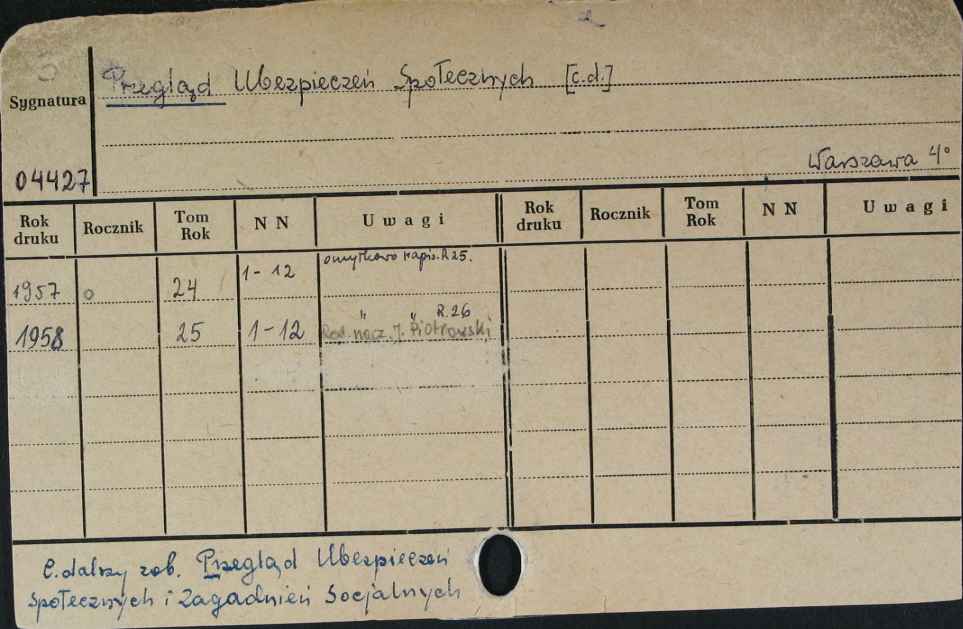 Przegląd Ubezpieczeń Społecznych [c.d.]
Sygnatura
04427
Warszawa 4°
Rok druku Rocznik Tom Rok N N Uwagi Rok druku Rocznik Tom Rok N N Uwagi
omyłkowo napis. R 25.
1957 o 24 1-12
" " R. 26
1958 25 1-12 Red. nacz. J. Piotrowski
C. dalszy zob. Przegląd Ubezpieczeń
Społecznych i Zagadnień Socjalnych